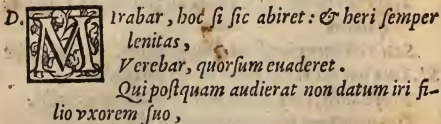 D. MIrabar, hoc si sic abiret: & heri semper
lenitas,
Verebar, quorsum euaderet.
Qui postquam audierat non datum iri fi-
lio vxorem suo,